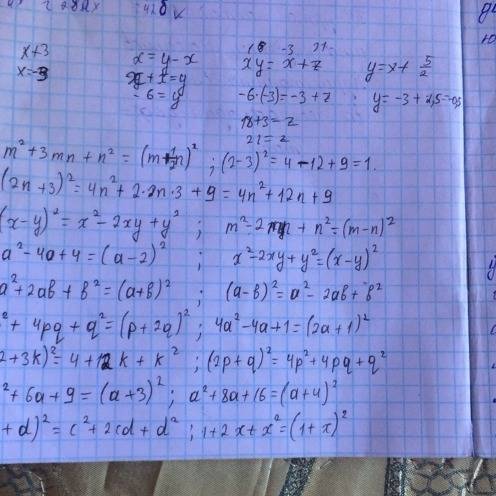 x+3 x = y - x 18 -3 21 xy = x + z y = x + 5/2
x = -3 x + x = y -6·(-3) = -3 + z y = -3 + 2,5 = -0,5
-6 = y 18+3 = z
21 = z
m² + 3mn + n² = (m+½n)² ; (2-3)² = 4 - 12 + 9 = 1.
(2n+3)² = 4n² + 2·2n·3 + 9 = 4n² + 12n + 9
(x-y)² = x² - 2xy + y² ; m² - 2mn + n² = (m-n)²
a² - 4a + 4 = (a-2)² ; x² - 2xy + y² = (x-y)²
a² + 2ab + b² = (a+b)² ; (a-b)² = a² - 2ab + b²
² + 4pq + q² = (p+2q)² ; 4a² - 4a + 1 = (2a+1)²
2+3k)² = 4 + 12k + k² ; (2p+q)² = 4p² + 4pq + q²
² + 6a + 9 = (a+3)² ; a² + 8a + 16 = (a+4)²
+ d)² = c² + 2cd + d² ; 1 + 2x + x² = (1+x)²